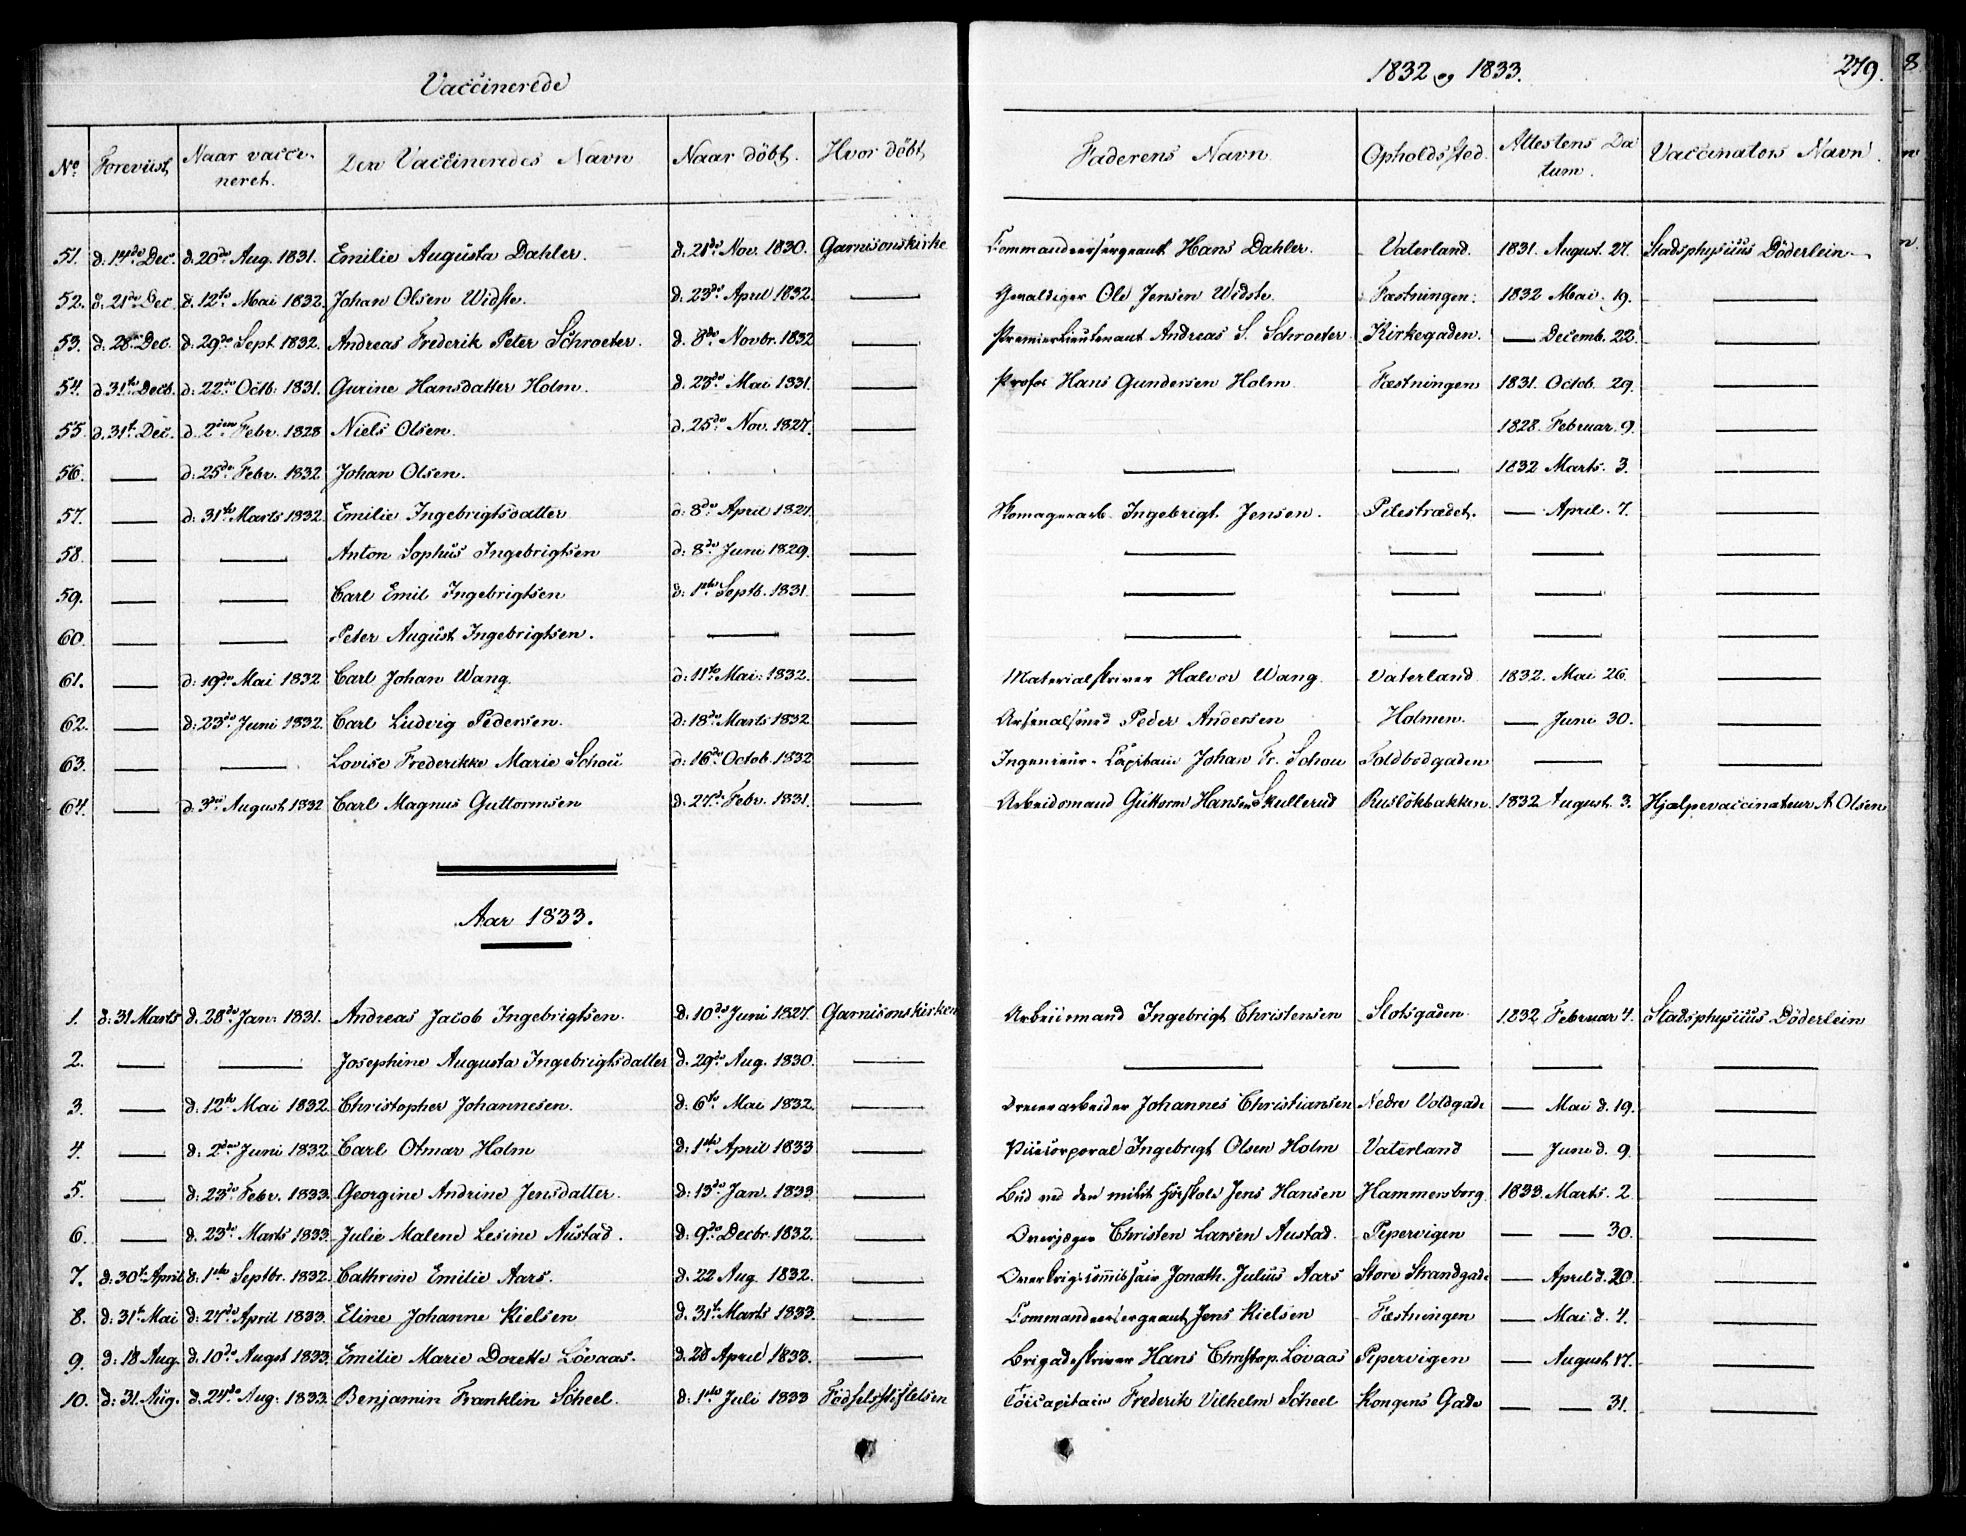 Vaccinerede
1832 og 1833. 279.
No. Foreviist Naar vacci- Den Vaccineredes Navn Naar döbt. Hvor döbt, Faderens Navn Opholdssted. Attestens Da Vaccinators Navn.
neret. tum.
51. d. 14de Dec. d. 20de Aug. 1831. Emilie Augusta Dahler. d. 21de Nov. 1830. Garnisonskirke Commandeersergeant Hans Dahler. Vaterland. 1831. August. 27. Stadsphysicus Döderlein —
52. d. 21de Dec. d. 12te Mai 1832. Johan Olsen Widste. d. 23de April 1832. — Gevaldiger Ole Jensen Widste. Fæstningen. 1832 Mai. 19. —
53. d. 28de Dec. d. 29de Sept. 1832. Andreas Frederik Peter Schroeter. d. 8de Novbr. 1832 — Premierlieutenant Andreas S. Schroeter. Kirkegaden. — Decemb. 22. —
54. d. 31te Decb. d. 22de Octb. 1831. Gurine Hansdatter Holm. d. 23de Mai 1831. — Profos Hans Gundersen Holm Fæstningen 1831. Octob. 29. —
55. d. 31te Dec. d. 2den Febr. 1828 Niels Olsen. d. 25de Nov. 1827. — 1828. Februar. 9. —
56. — d. 25de Febr. 1832 Johan Olsen. — — 1832 Marts. 3. —
57. — d: 31te Marts 1832. Emilie Ingebrigtsdatter d: 8de April 1827. — Skomagerarb. Ingebrigt Jensen. Pilestrædet. — April. 7. —
58. — — Anton Sophus Ingebrigtsen d: 8de Juni 1829. — — — — —
59. — — Carl Emil Ingebrigtsen d: 1ste Septb. 1831. — — — — —
60. — — Peter August Ingebrigtsen. — — — — — —
61. — d: 19de Mai 1832 Carl Johan Wang. d: 11te Mai: 1832. — Materialskriver Halvor Wang. Vaterland 1832. Mai 26. —
62. — d: 23de Juni 1832. Carl Ludvig Pedersen. d: 18de Marts 1832 — Arsenalsmed Peder Andersen Holmen. — Juni 30. —
63. — — Lovise Frederikke Marie Schou d: 16de Octob. 1832 — Ingenieur-Capitain Johan Fr. Schou Toldbodgaden — —
64. — d. 3die August 1832 Carl Magnus Guttormsen d. 27de Febr. 1831. — Arbeidsmand Guttorm Hansen Skullerud Ruslökbakken. 1832 August. 3. Hjælpevaccinateur A Olsen
Aar 1833.
1. d: 31 Marts d. 28de Jan: 1831. Andreas Jacob Ingebrigtsen. d: 10de Juni 1827. Garnisonskirken Arbeidsmand Ingebrigt Christensen Slotsgaden. 1832. Februar 4. Stadsphysicus Döderlein
2. — — Josephine Augusta Ingebrigtsdatter d. 29de Aug. 1830. — — — — —
3. — d: 12te Mai 1832. Christopher Johannesen. d: 6te Mai 1832. — Dreierarbeider Johannes Christiansen Nedre Voldgade — Mai d. 19. —
4. — d. 2den Juni 1832 Carl Otmar Holm d: 1ste April 1833 — Vicecorporal Ingebrigt Olsen Holm Vaterland — Juni d. 9. —
5. — d: 23de Febr. 1833. Georgine Andrine Jensdatter. d: 13de Jan. 1833 — Bud ved den milit Höiskole Jens Hansen Hammersborg. 1833. Marts. 2. —
6. — d. 23de Marts 1833. Julie Malene Lesine Austad. d: 9de Decbr. 1832. — Overjæger Christen Larsen Austad. Pepervigen — — 30. —
7. d: 30te April d: 1ste Septbr. 1832. Cathrine Emilie Aars. d: 22 Aug. 1832. — Overkrigscommissair Jonath. Julius Aars Store Strandgade — April d. 20. —
8. d: 31te Mai d: 27de April 1833. Eline Johanne Kielsen d. 31te Marts 1833. — Commandeersergeant Jens Kielsen Fæstningen — Mai d. 4. —
9. d: 18 Aug. d: 10de Augst 1833. Emilie Marie Dorette Lövaas. d. 28 April 1833. — Brigadeskriver Hans Christop. Lövaas Pepervigen — August 17. —
10. d: 31. Aug. d. 24de Aug: 1833. Benjamin Franklin Scheel. d: 1ste Juli 1833 Födselsstiftelsen Töicapitain Frederik Vilhelm Scheel Kongens Gade — — 31. —